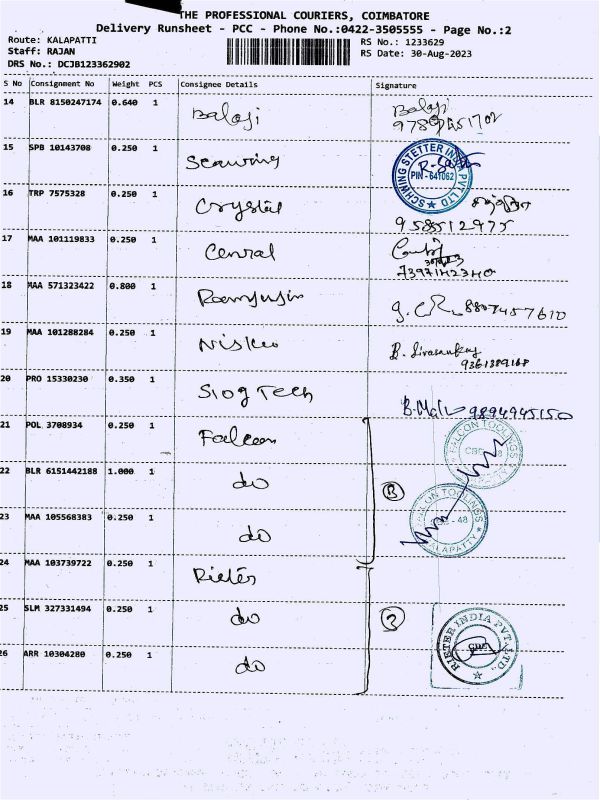 THE PROFESSIONAL COURIERS, COIMBATORE
Delivery Runsheet - PCC - Phone No.:0422-3505555 - Page No.:2
Route: KALAPATTI
Staff: RAJAN
DRS No.: DCJB123362902
RS No.: 1233629
RS Date: 30-Aug-2023
S No Consignment No Weight PCS Consignee Details Signature
14 BLR 8150247174 0.640 1 Balaji Balaji
15 SPB 10143708 0.250 1
SCHWING STETTER INDIA PVT LTD
PIN - 641062
16 TRP 7575328 0.250 1 Crystal
9585512975
17 MAA 101119833 0.250 1
18 MAA 571323422 0.800 1 8807457610
19 MAA 101288284 0.250 1 B. Sivasankar
9361389168
20 PRO 15330230 0.350 1 Slog Tech
9894945150
21 POL 3708934 0.250 1 Falcon
FALCON TOOLINGS
22 BLR 6151442188 1.000 1 do
FALCON TOOLINGS
- 48
KALAPATTY
23 MAA 105568383 0.250 1 do
24 MAA 103739722 0.250 1 Rieter
25 SLM 327331494 0.250 1 do
RIETER INDIA PVT. LTD.,
26 ARR 10304280 0.250 1 do